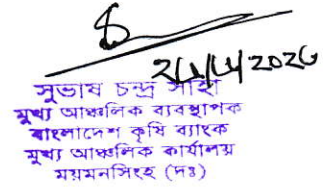 সুভাষ চন্দ্র সাহা
মুখ্য আঞ্চলিক ব্যবস্থাপক
বাংলাদেশ কৃষি ব্যাংক
মুখ্য আঞ্চলিক কার্যালয়
ময়মনসিংহ (দঃ)